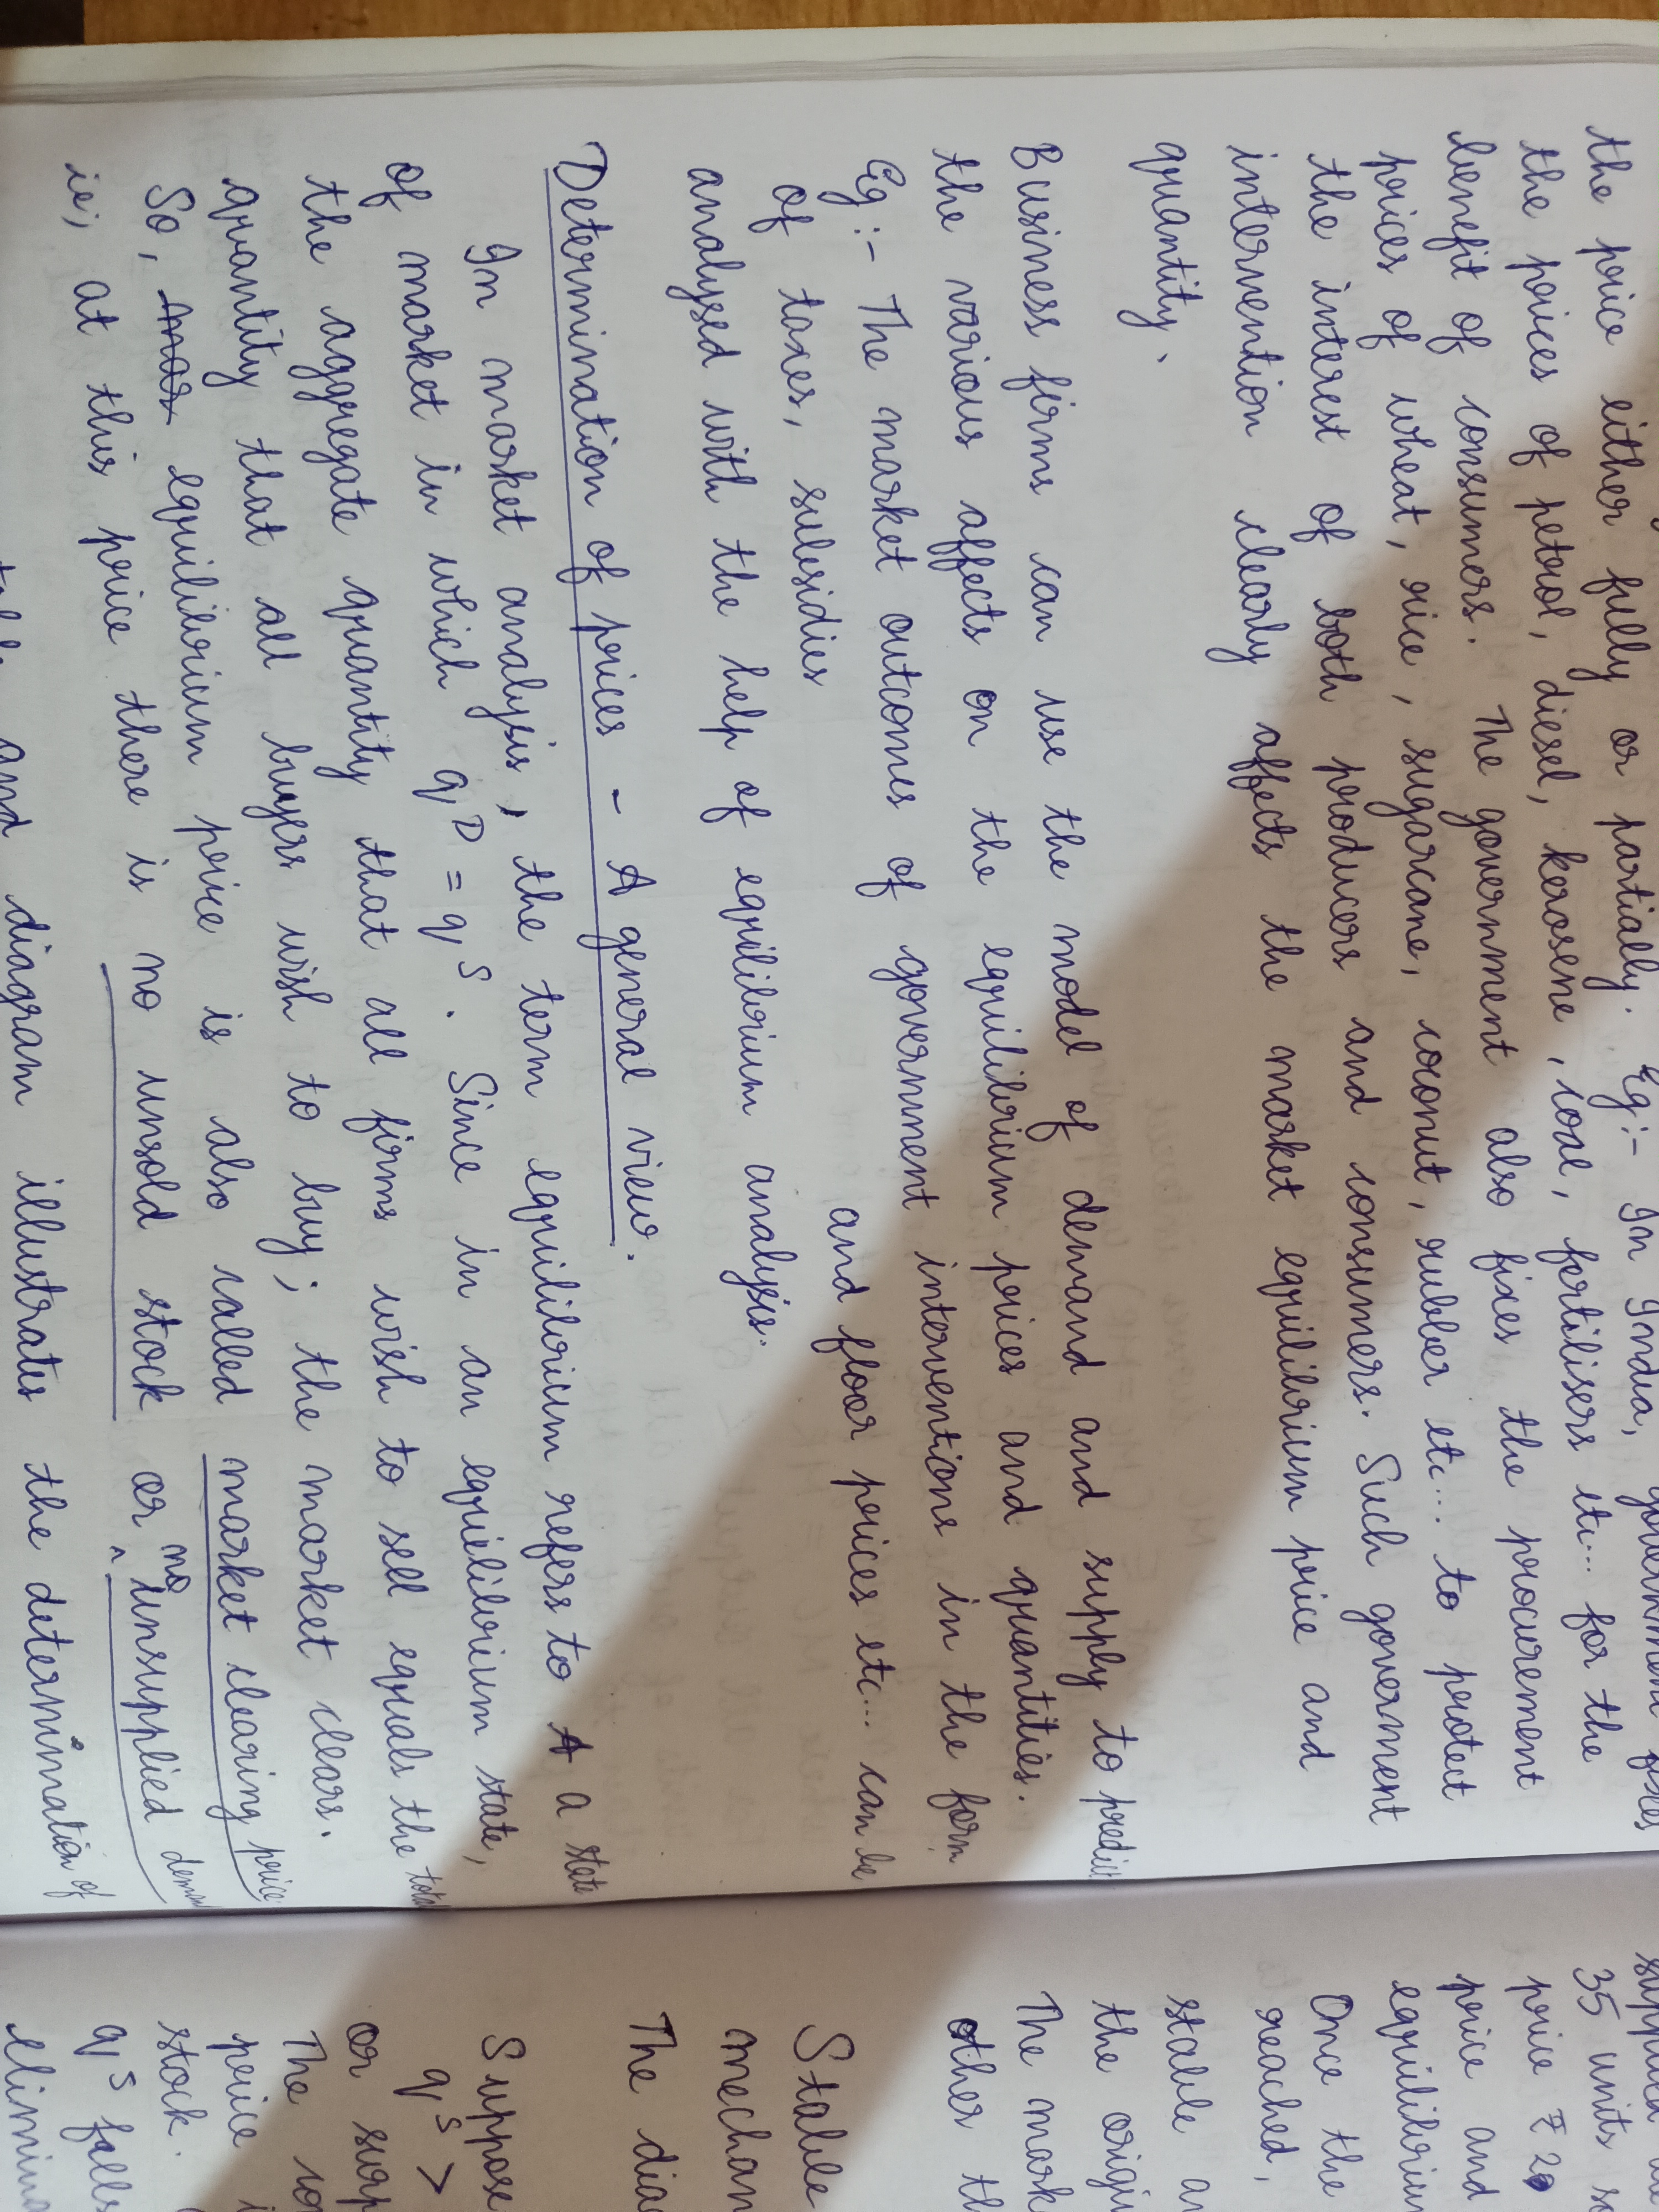 the price either fully or partially. Eg:- In India, government fixes
the prices of petrol, diesel, kerosene, coal, fertilisers etc... for the
benefit of consumers. The government also fixes the procurement
prices of wheat, rice, sugarcane, coconut, rubber etc... to protect
the interest of both producers and consumers. Such government
intervention clearly affects the market equilibrium price and
quantity.
Business firms can use the model of demand and supply to predict
the various affects on the equilibrium prices and quantities.
Eg:- The market outcomes of government interventions in the form
of taxes, subsidies and floor prices etc... can be
analysed with the help of equilibrium analysis.
Determination of prices - A general view.
In market analysis, the term equilibrium refers to a state
of market in which q^D = q^S. Since in an equilibrium state,
the aggregate quantity that all firms wish to sell equals the total
quantity that all buyers wish to buy; the market clears.
So, equilibrium price is also called market clearing price
ie; at this price there is no unsold stock or no unsupplied
and diagram illustrates the determination of
35 units
price ₹ 20
price and
equilibrium
Once the
reached,
stable
the
The
other
Stable
The
Suppose
q^S >
or
The
price
stock.
q^S falls